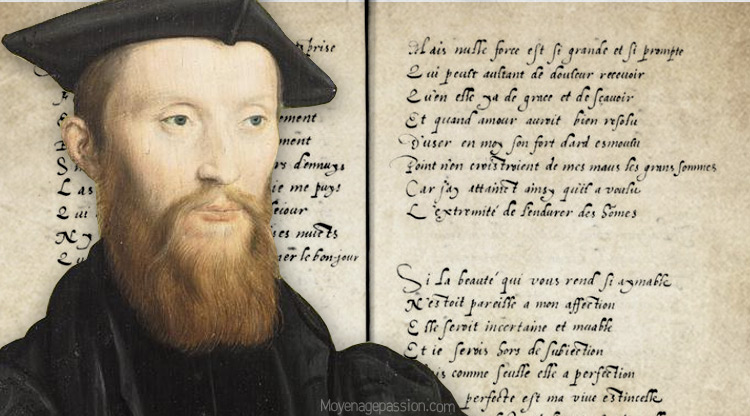 prise
ement
ment
rs d'ennuys
Las ie me puys
Qui ecour
Ny es nuets
er le bon-jour
Mais nulle force est si grande et si prompte
Qui peult aultant de douleur recevoir
Qu'en elle ya de grace et de sçavoir
Et quand amour auroit bien resolu
D'user en moy son fort dard esmoulu
Point n'en croistroient de mes maux les grans sommes
Car j'ay attainct ainsy qu'il a voulu
L'extremité de l'endurer des homes
Si la beauté qui vous rend si aymable
N'estoit pareille a mon affection
Elle seroit incertaine et muable
Et ie serois hors de subiection
is comme seulle elle a perfection
perfecte est ma vive estincelle
Moyenagepassion.com